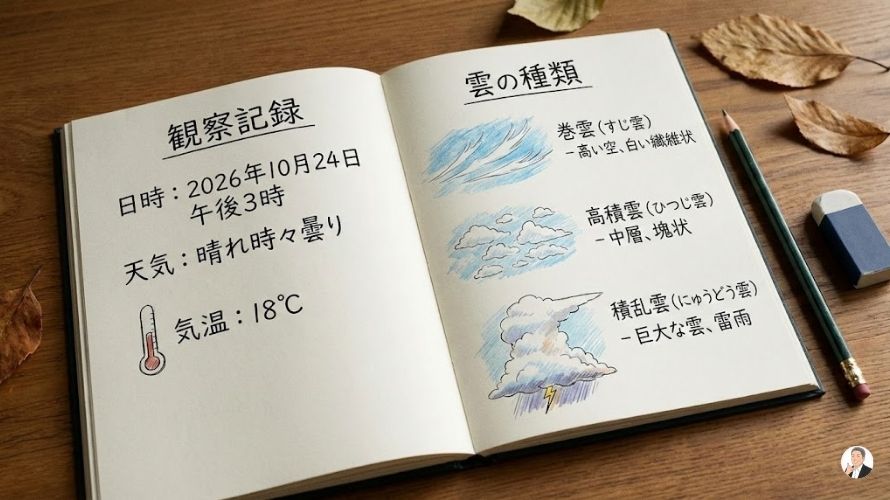 観察記録
日時：2026年10月24日
午後3時
天気：晴れ時々曇り
気温：18℃
雲の種類
巻雲（すじ雲）
－高い空、白い繊維状
高積雲（ひつじ雲）
－中層、塊状
積乱雲（にゅうどう雲）
－巨大な雲、雷雨